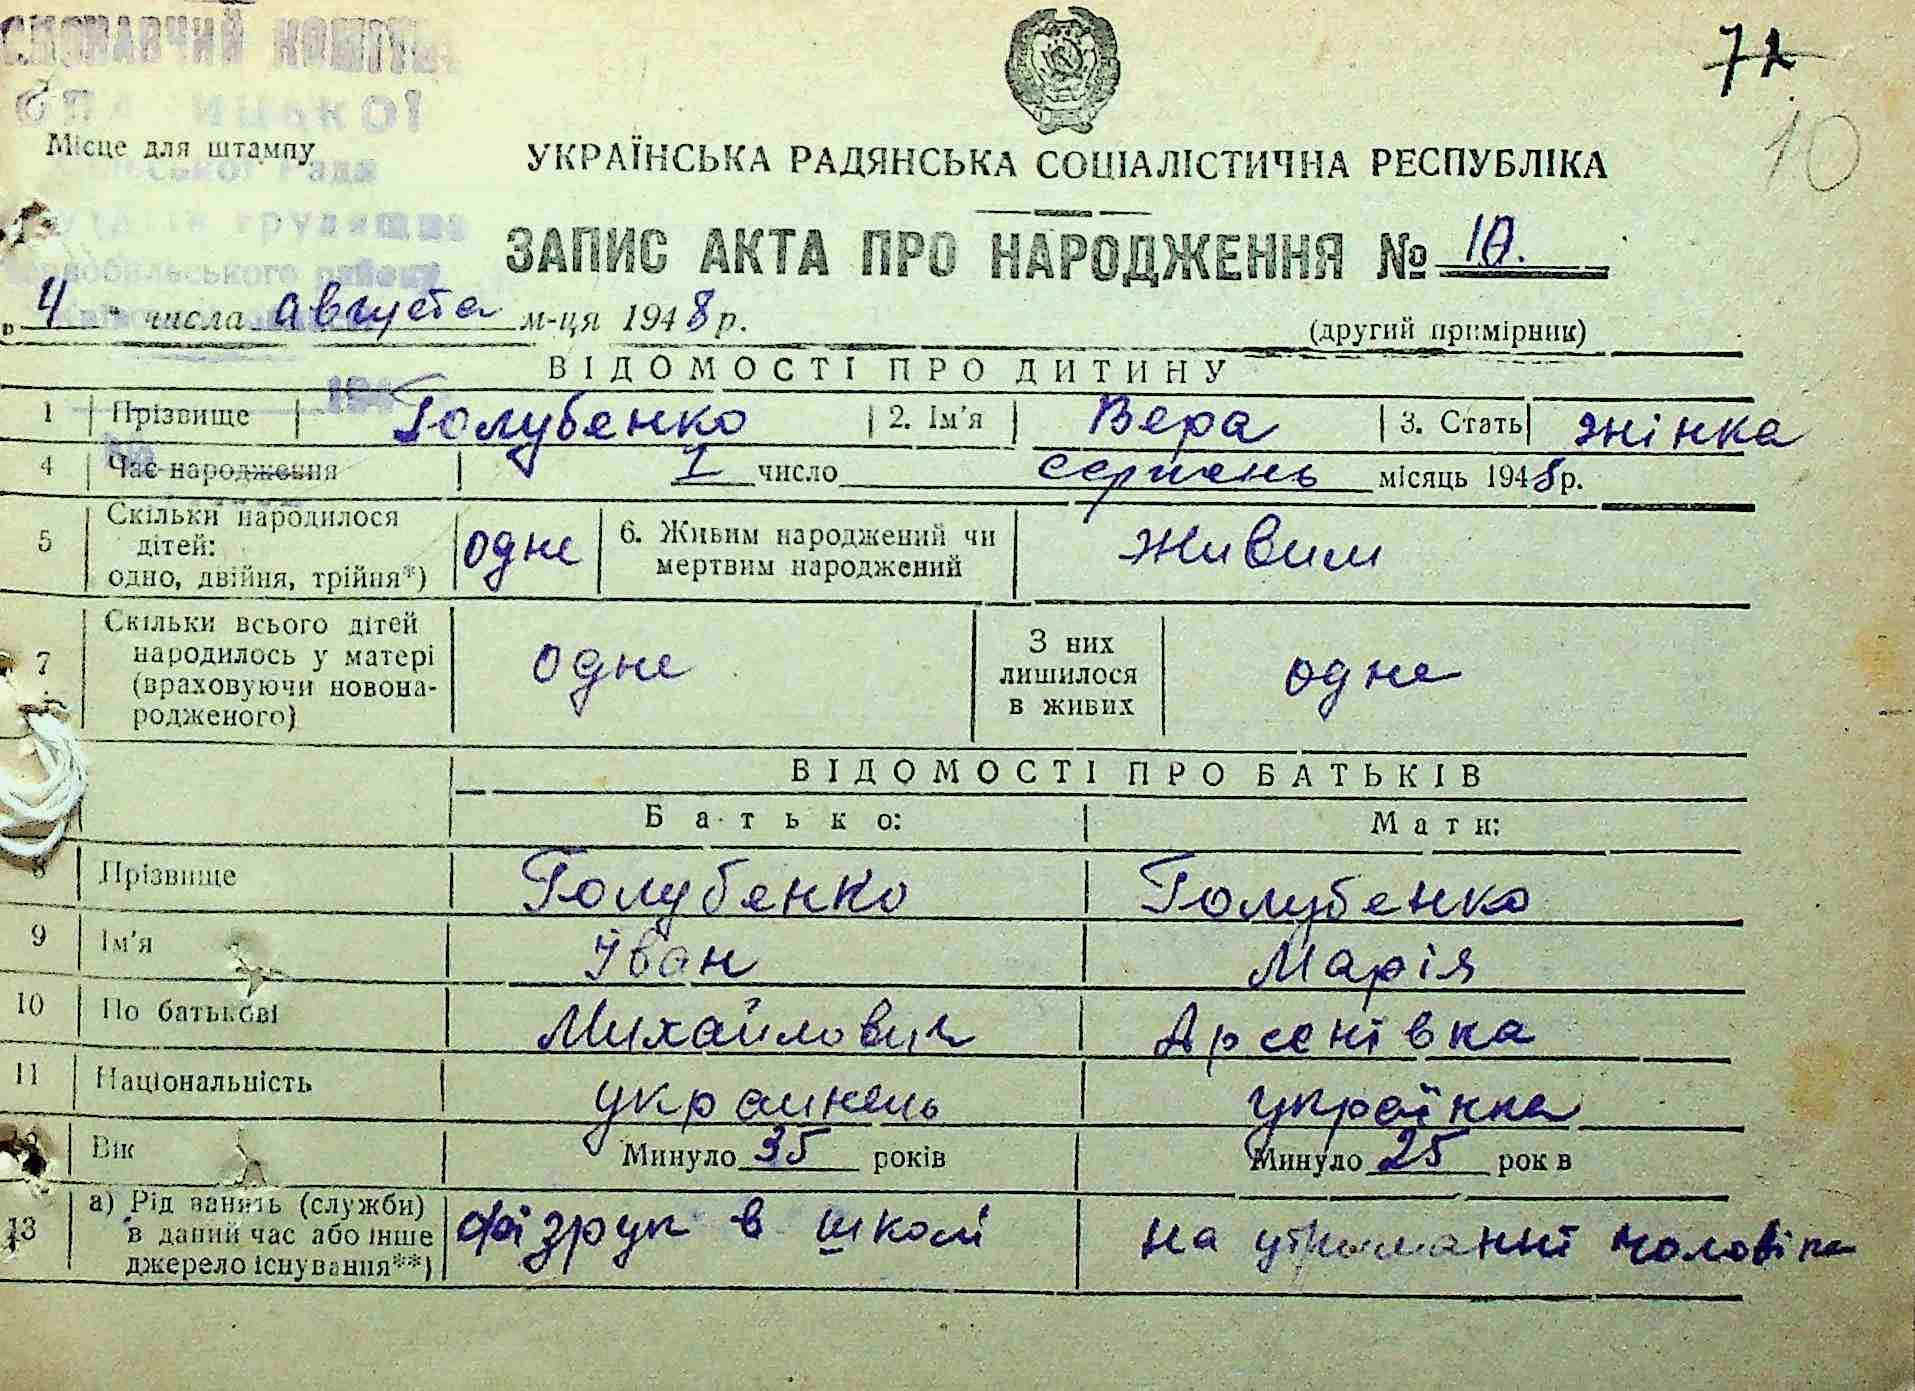 72
10
Місце для штампу
УКРАЇНСЬКА РАДЯНСЬКА СОЦІАЛІСТИЧНА РЕСПУБЛІКА
ЗАПИС АКТА ПРО НАРОДЖЕННЯ № 10.
„ 4 “ числа августа м-ця 1948 р.
(другий примірник)
ВІДОМОСТІ ПРО ДИТИНУ
1 Прізвище Голубенко 2. Ім'я Вера 3. Стать жінка
4 Час народження 1 число серпень місяць 1948 р.
5 Скільки народилося
дітей:
одно, двійня, трійня*) одне 6. Живим народжений чи
мертвим народжений живим
7 Скільки всього дітей
народилось у матері
(враховуючи новона-
родженого) одне З них
лишилося
в живих одне
ВІДОМОСТІ ПРО БАТЬКІВ
Батько: Мати:
8 Прізвище Голубенко Голубенко
9 Ім'я Іван Марія
10 По батькові Михайлович Арсенівка
11 Національність украинець українка
12 Вік Минуло 35 років Минуло 25 рок в
13 а) Рід занять (служби)
в даний час або інше
джерело існування**) фізрук в школі на утриманні чоловіка